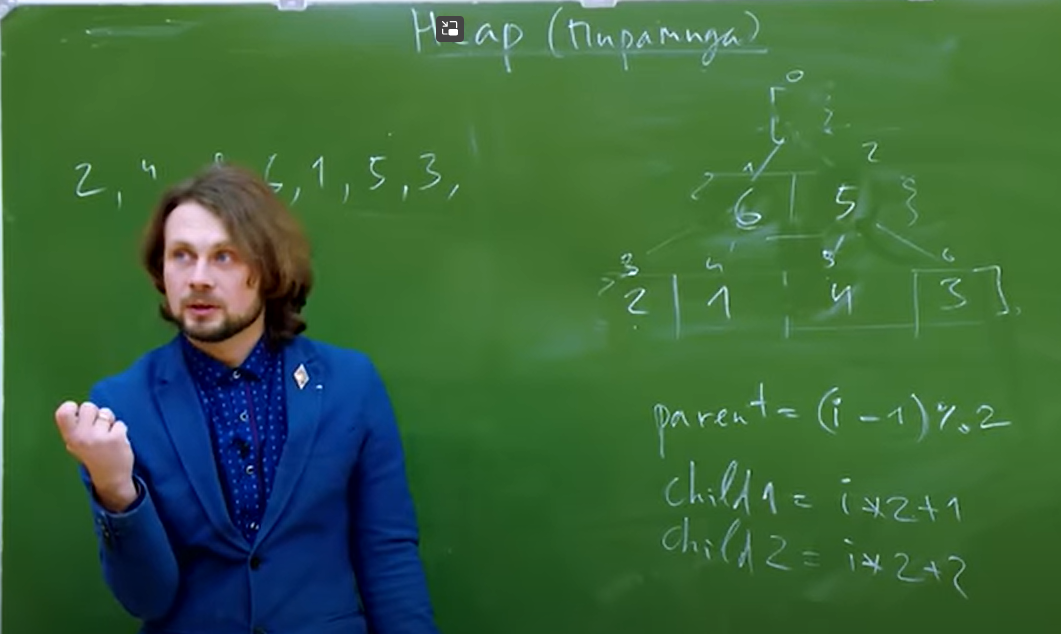 Heap (Пирамида)
0
2, 4 6, 1, 5, 3,
1 2
6 5
3 4 5 6
2 1 4 3
parent = (i - 1) % 2
child 1 = i * 2 + 1
child 2 = i * 2 + 2